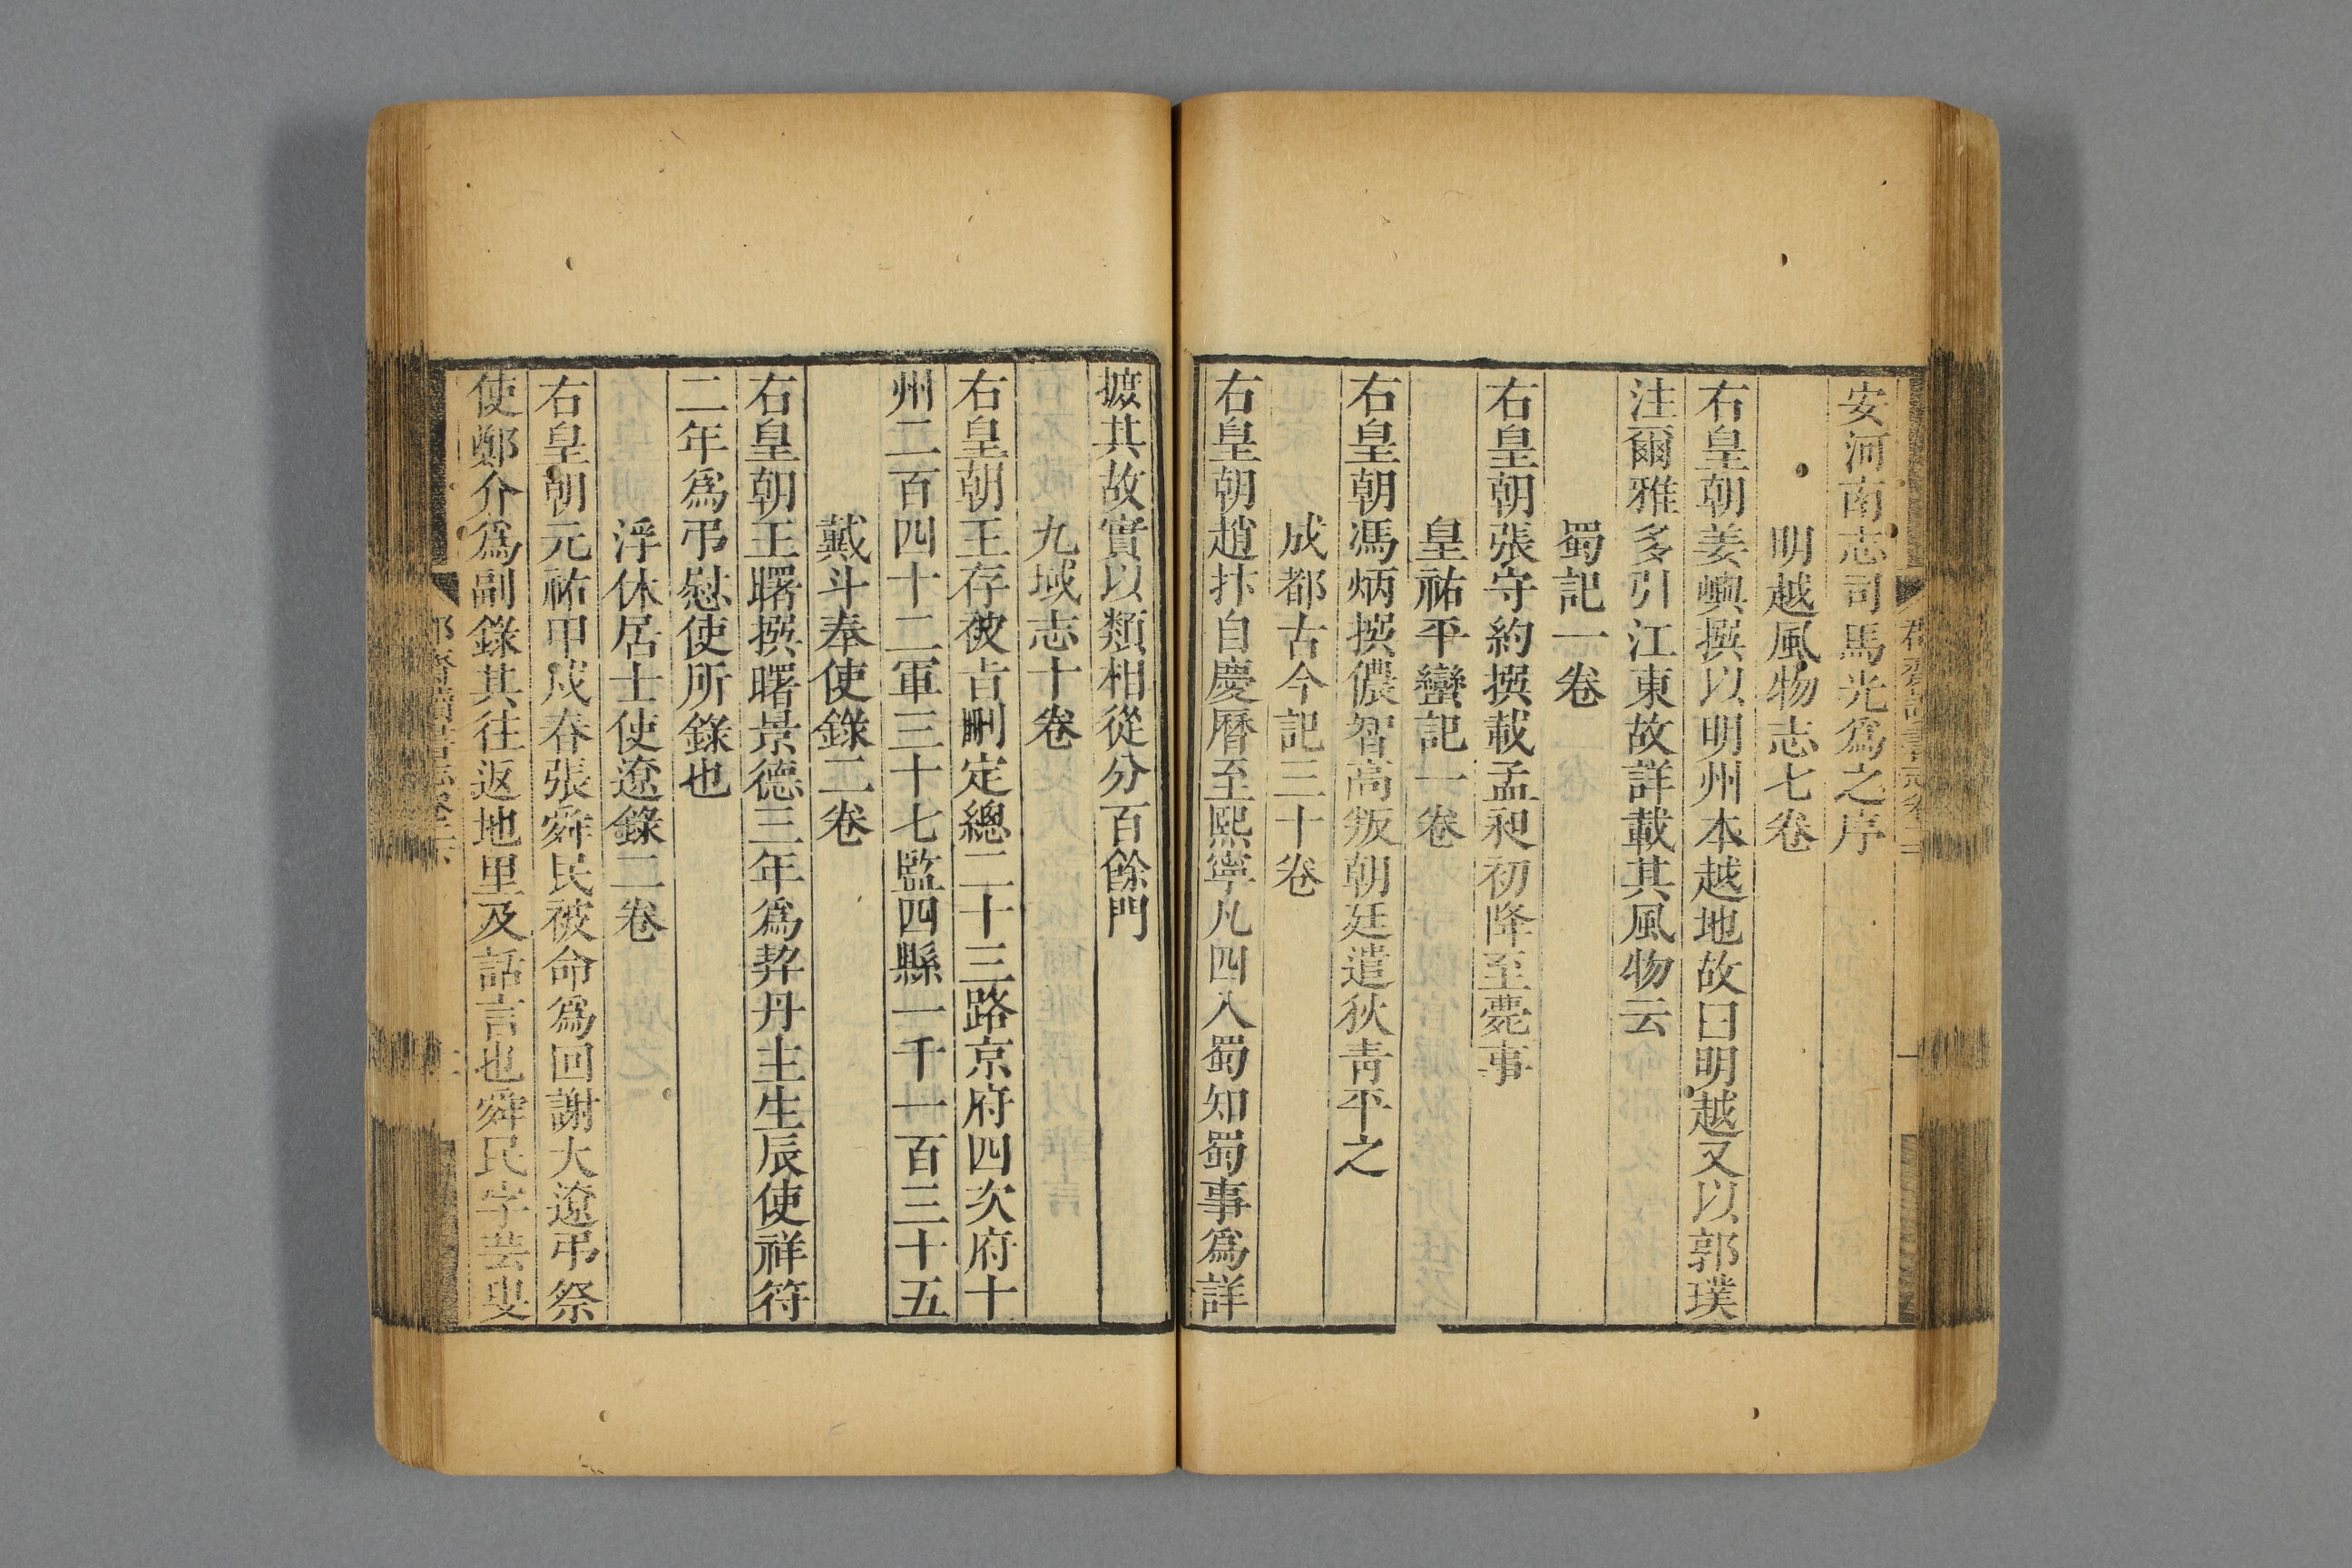 安河南志司馬光爲之序
明越風物志七卷
右皇朝姜嶼撰以明州本越地故曰明越又以郭璞
注爾雅多引江東故詳載其風物云
蜀記一卷
右皇朝張守約撰載孟昶初降至薨事
皇祐平蠻記一卷
右皇朝馮炳撰儂智高叛朝廷遣狄青平之
成都古今記三十卷
右皇朝趙抃自慶曆至熙寧凡四入蜀知蜀事爲詳
摭其故實以類相從分百餘門
九域志十卷
右皇朝王存被旨刪定總二十三路京府四次府十
州二百四十二軍三十七監四縣一千一百三十五
戴斗奉使錄二卷
右皇朝王曙撰曙景德三年爲契丹主生辰使祥符
二年爲弔慰使所錄也
浮休居士使遼錄二卷
右皇朝元祐甲戌春張舜民被命爲回謝大遼弔祭
使鄭介爲副錄其往返地里及話言也舜民字芸叟